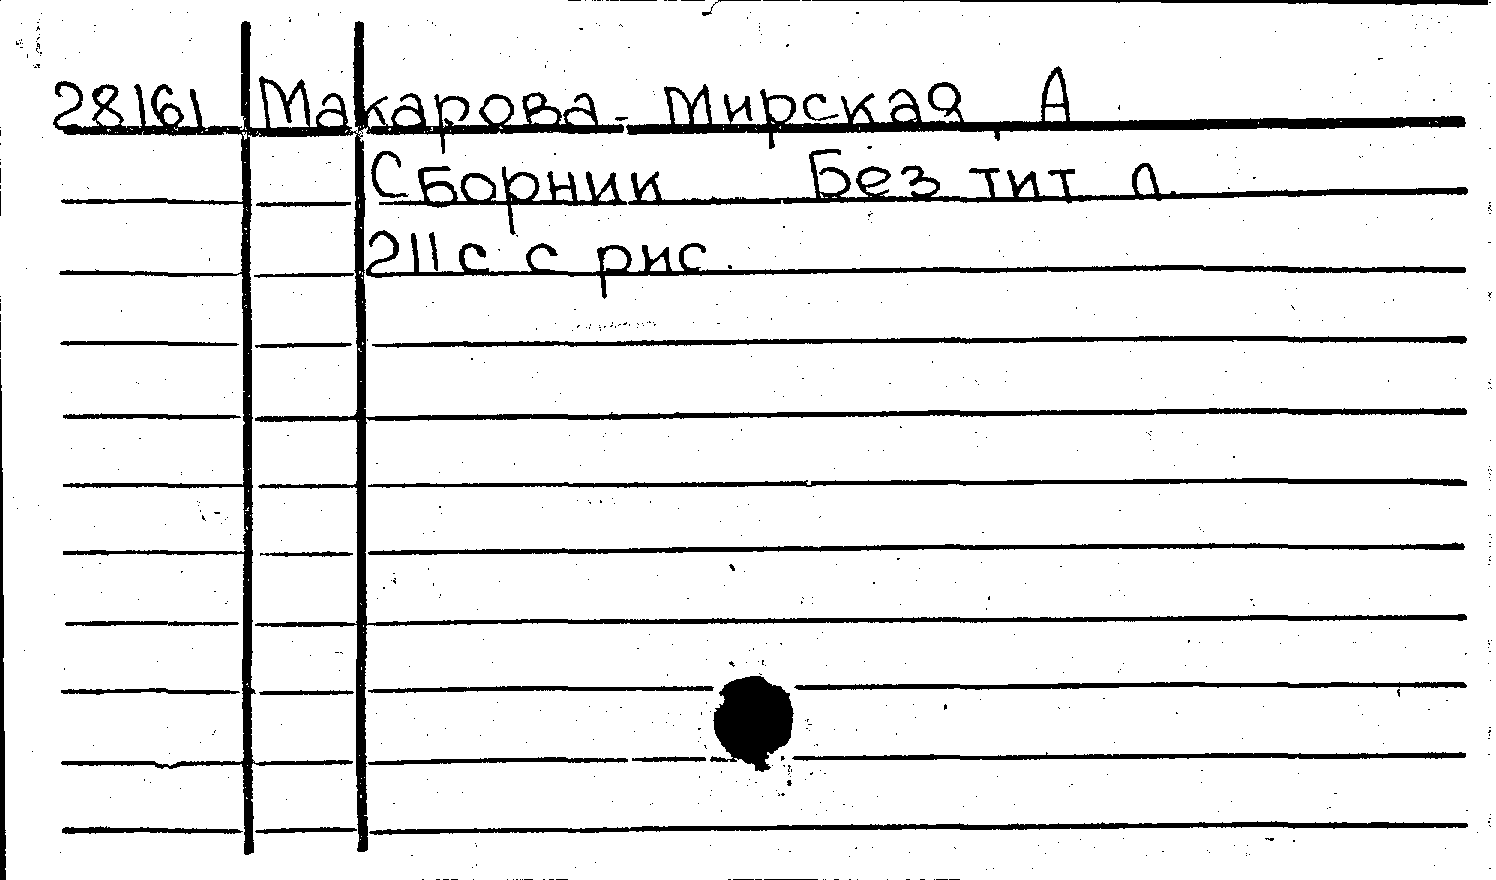 28161 Макарова-Мирская, А
Сборник Без тит л.
211с с рис.